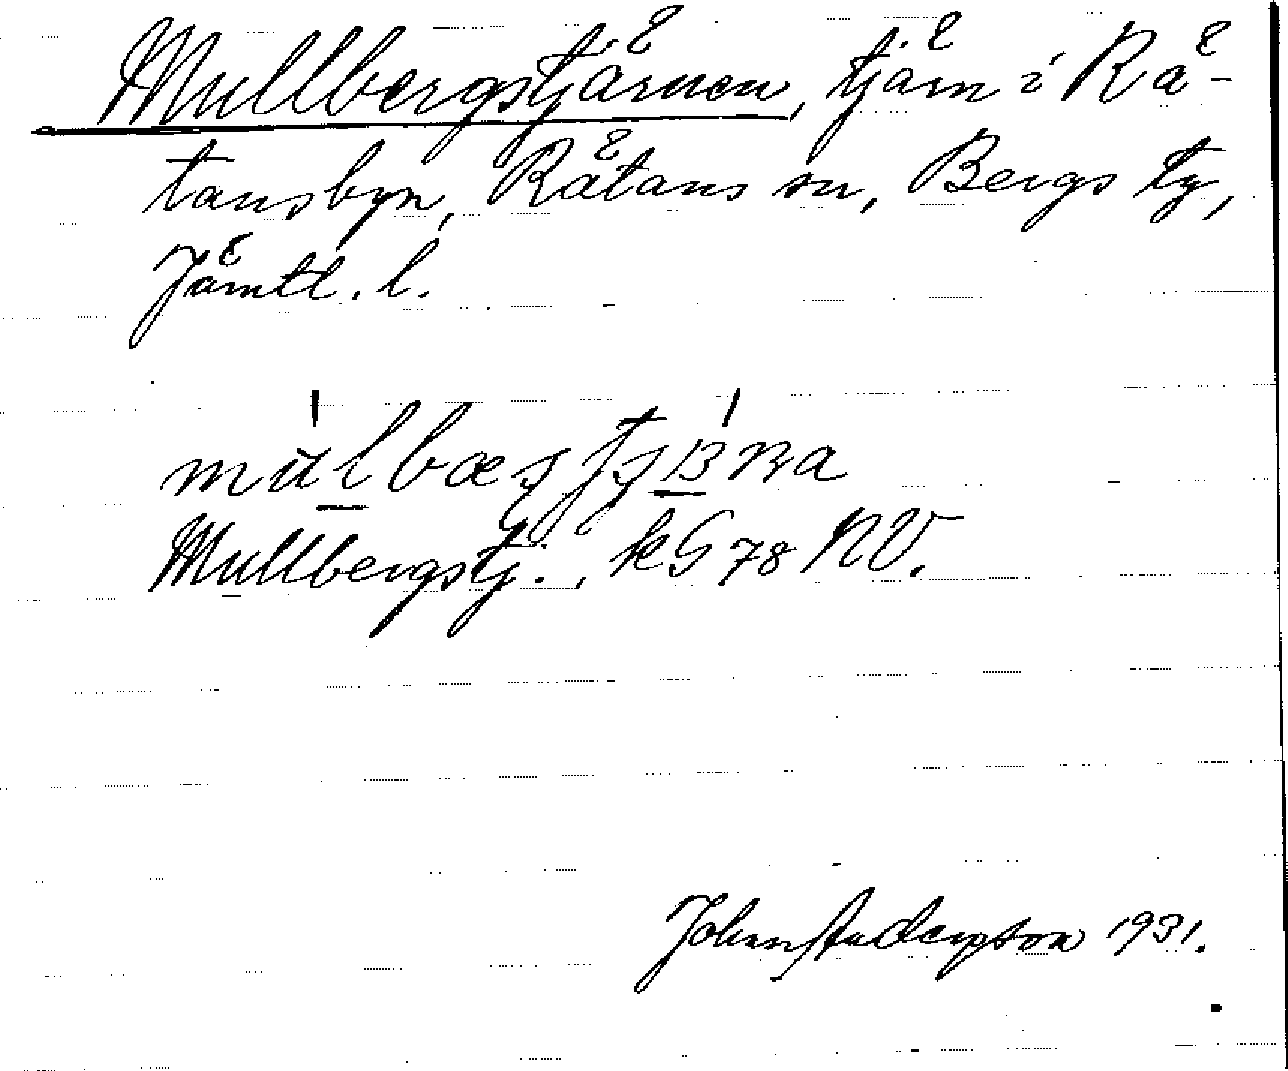 Mullbergstjärnen, tjärn i Rä-
tansbyn, Rätans sn, Bergs tg,
Jämtl. l.
Mullbergstj., kG 78 NV.
John Anderson 1931.